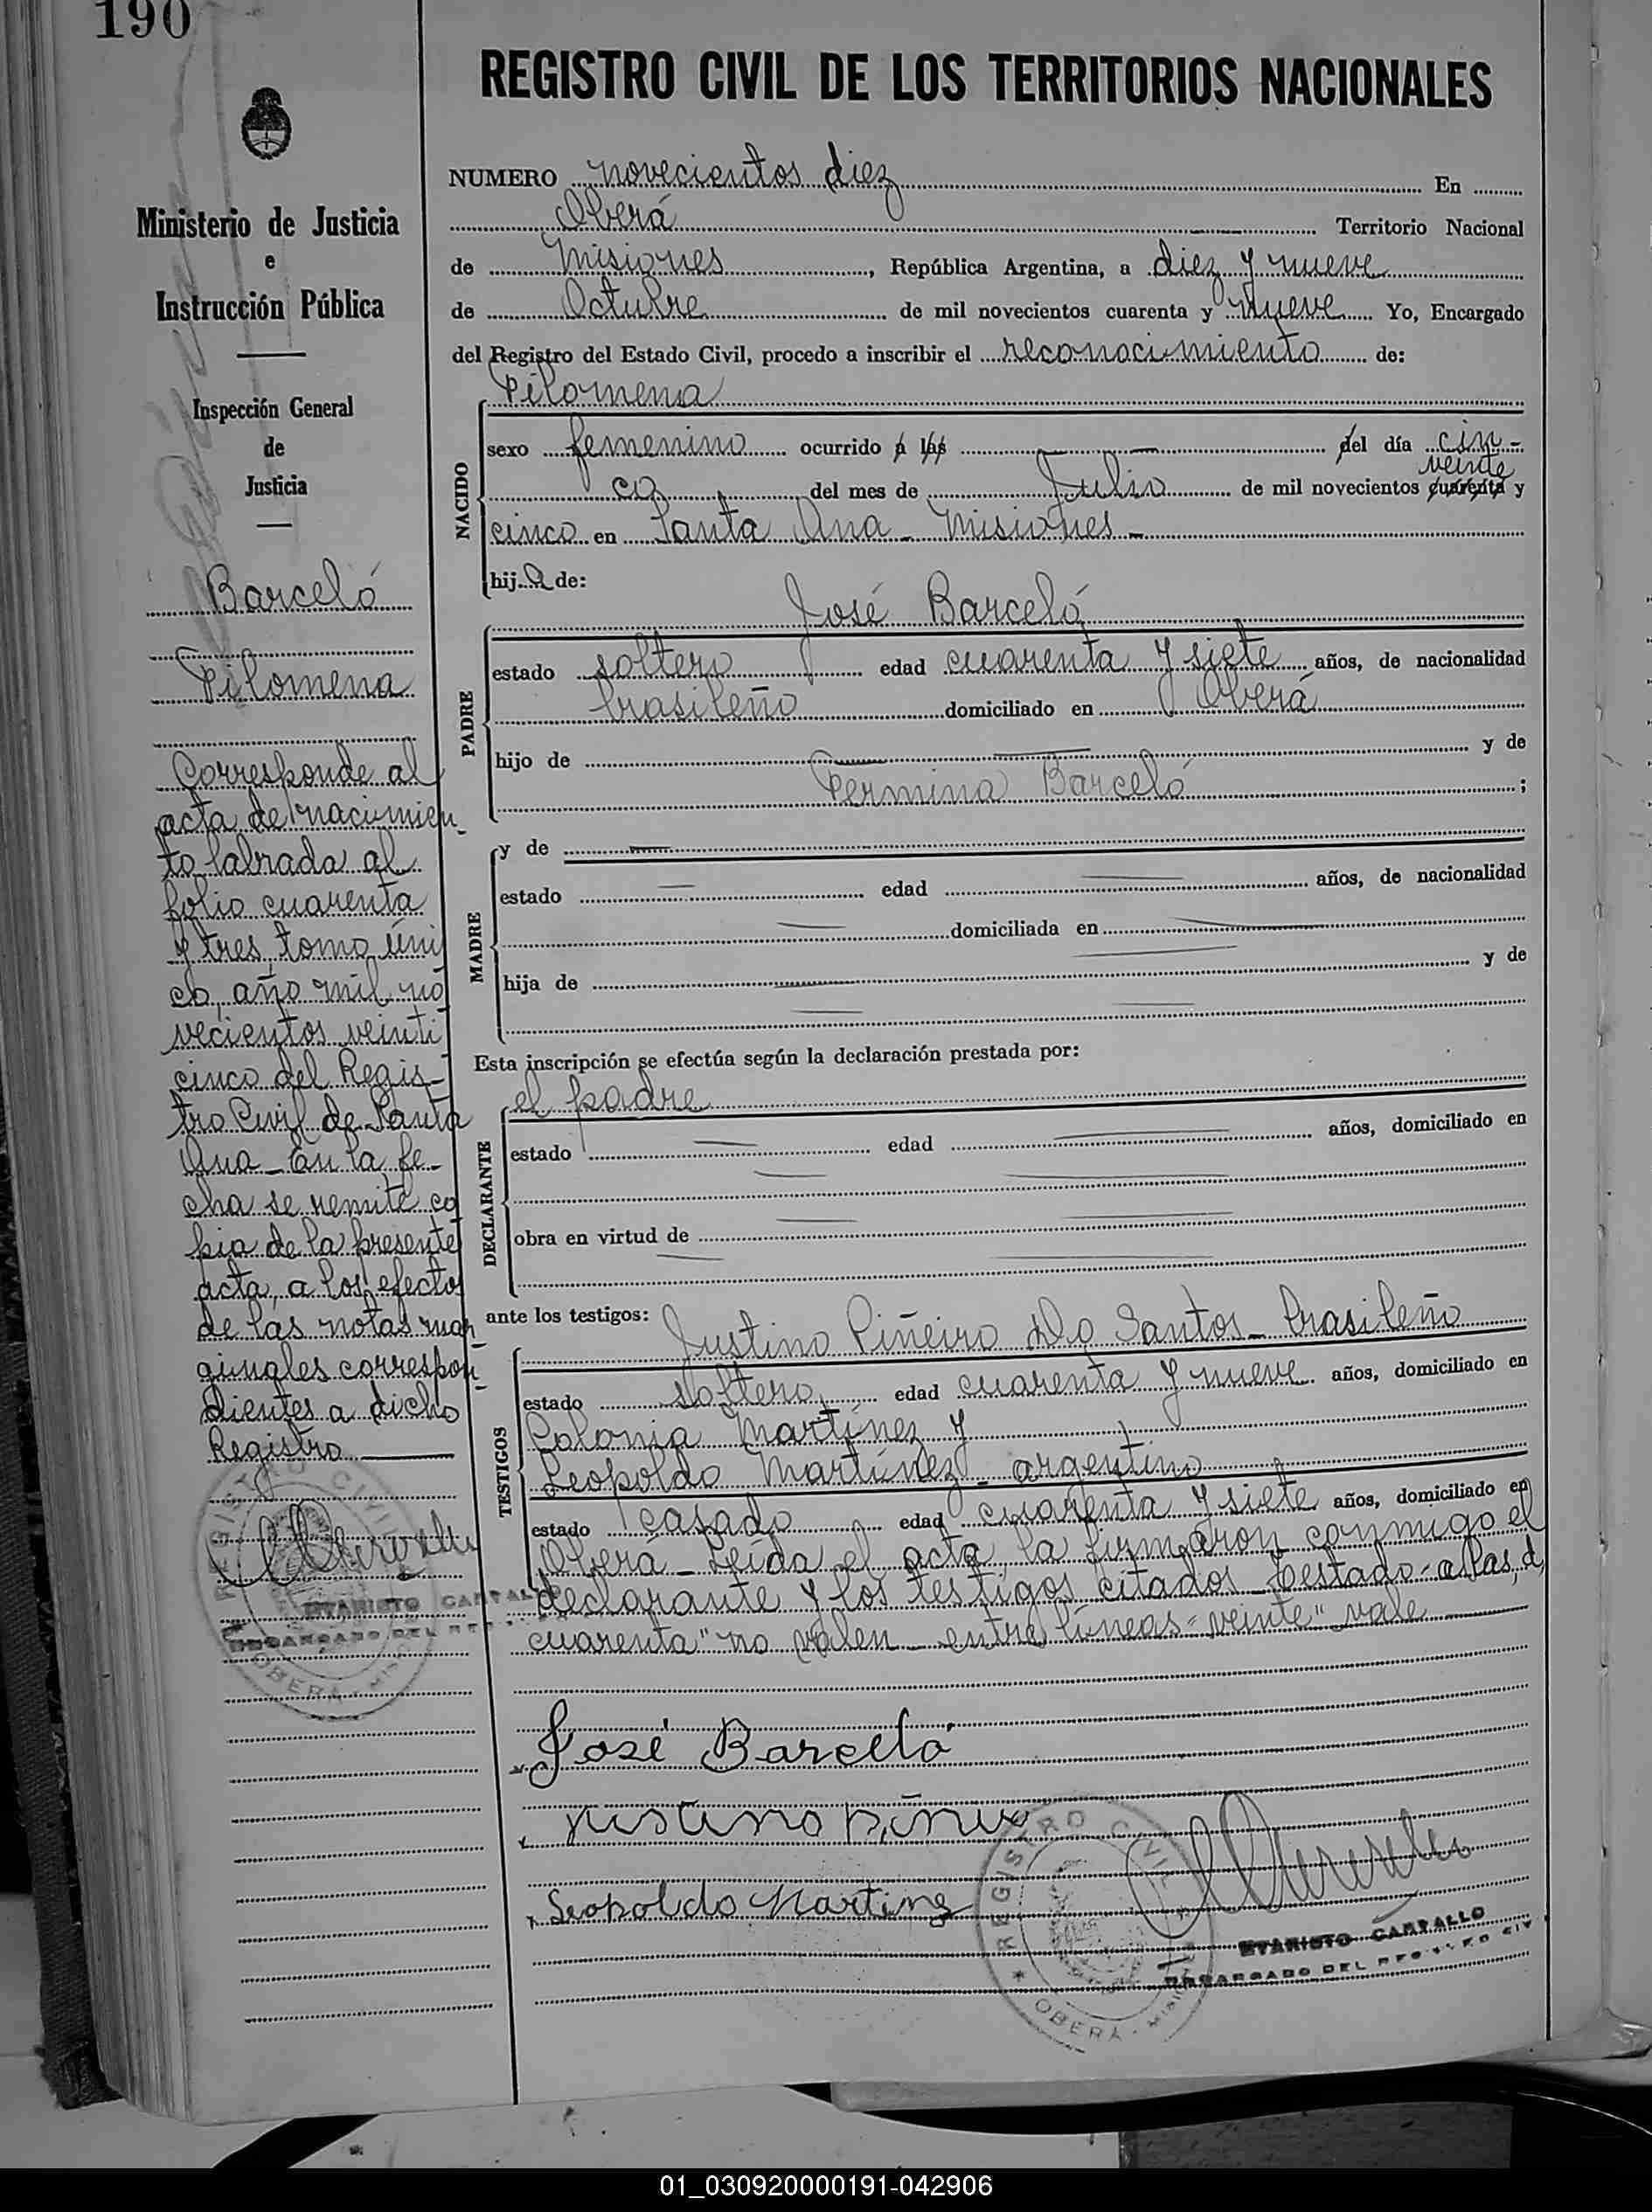 190
Ministerio de Justicia
e
Instrucción Pública
Inspección General
de
Justicia
Barceló
Filomena
Corresponde al
acta de nacimien_
to labrada al
folio cuarenta
y tres, tomo úni
co, año mil no
vecientos veinti
cinco del Regis_
tro Civil de Santa
Ana_ En la fe_
cha se remite co
pia de la presente
acta, a los efectos
de las notas mar_
ginales correspon_
dientes a dicho
Registro
REGISTRO CIVIL
EVARISTO CARVALLO
ENCARGADO DEL REG
OBERÁ - MIS
REGISTRO CIVIL DE LOS TERRITORIOS NACIONALES
NUMERO novecientos diez En
Oberá Territorio Nacional
de Misiones, República Argentina, a diez y nueve
de Octubre de mil novecientos cuarenta y nueve Yo, Encargado
del Registro del Estado Civil, procedo a inscribir el reconocimiento de:
Filomena
NACIDO
sexo femenino ocurrido a las del día cin-
veinte
co del mes de Julio de mil novecientos cuarenta y
cinco en Santa Ana_ Misiones_
hija de:
José Barceló
PADRE
estado soltero edad cuarenta y siete años, de nacionalidad
brasileño domiciliado en Oberá
hijo de y de
Fermina Barceló ;
MADRE
y de
estado edad años, de nacionalidad
domiciliada en
hija de y de
Esta inscripción se efectúa según la declaración prestada por:
el padre
DECLARANTE
estado edad años, domiciliado en
obra en virtud de
ante los testigos: Justino Piñeiro Do Santos_ brasileño
TESTIGOS
estado soltero edad cuarenta y nueve años, domiciliado en
Colonia Martínez y
Leopoldo Martínez_ argentino
estado casado edad cuarenta y siete años, domiciliado en
Oberá_ Leída el acta la firmaron conmigo el
declarante y los testigos citados_ Testado- a las, d,
cuarenta" no valen_ entre líneas="veinte" vale
José Barceló
Justino
Leopoldo Martinez
REGISTRO CIVIL
OBERÁ - MISI
EVARISTO CARVALLO
ENCARGADO DEL REGISTRO CIV
01_030920000191-042906